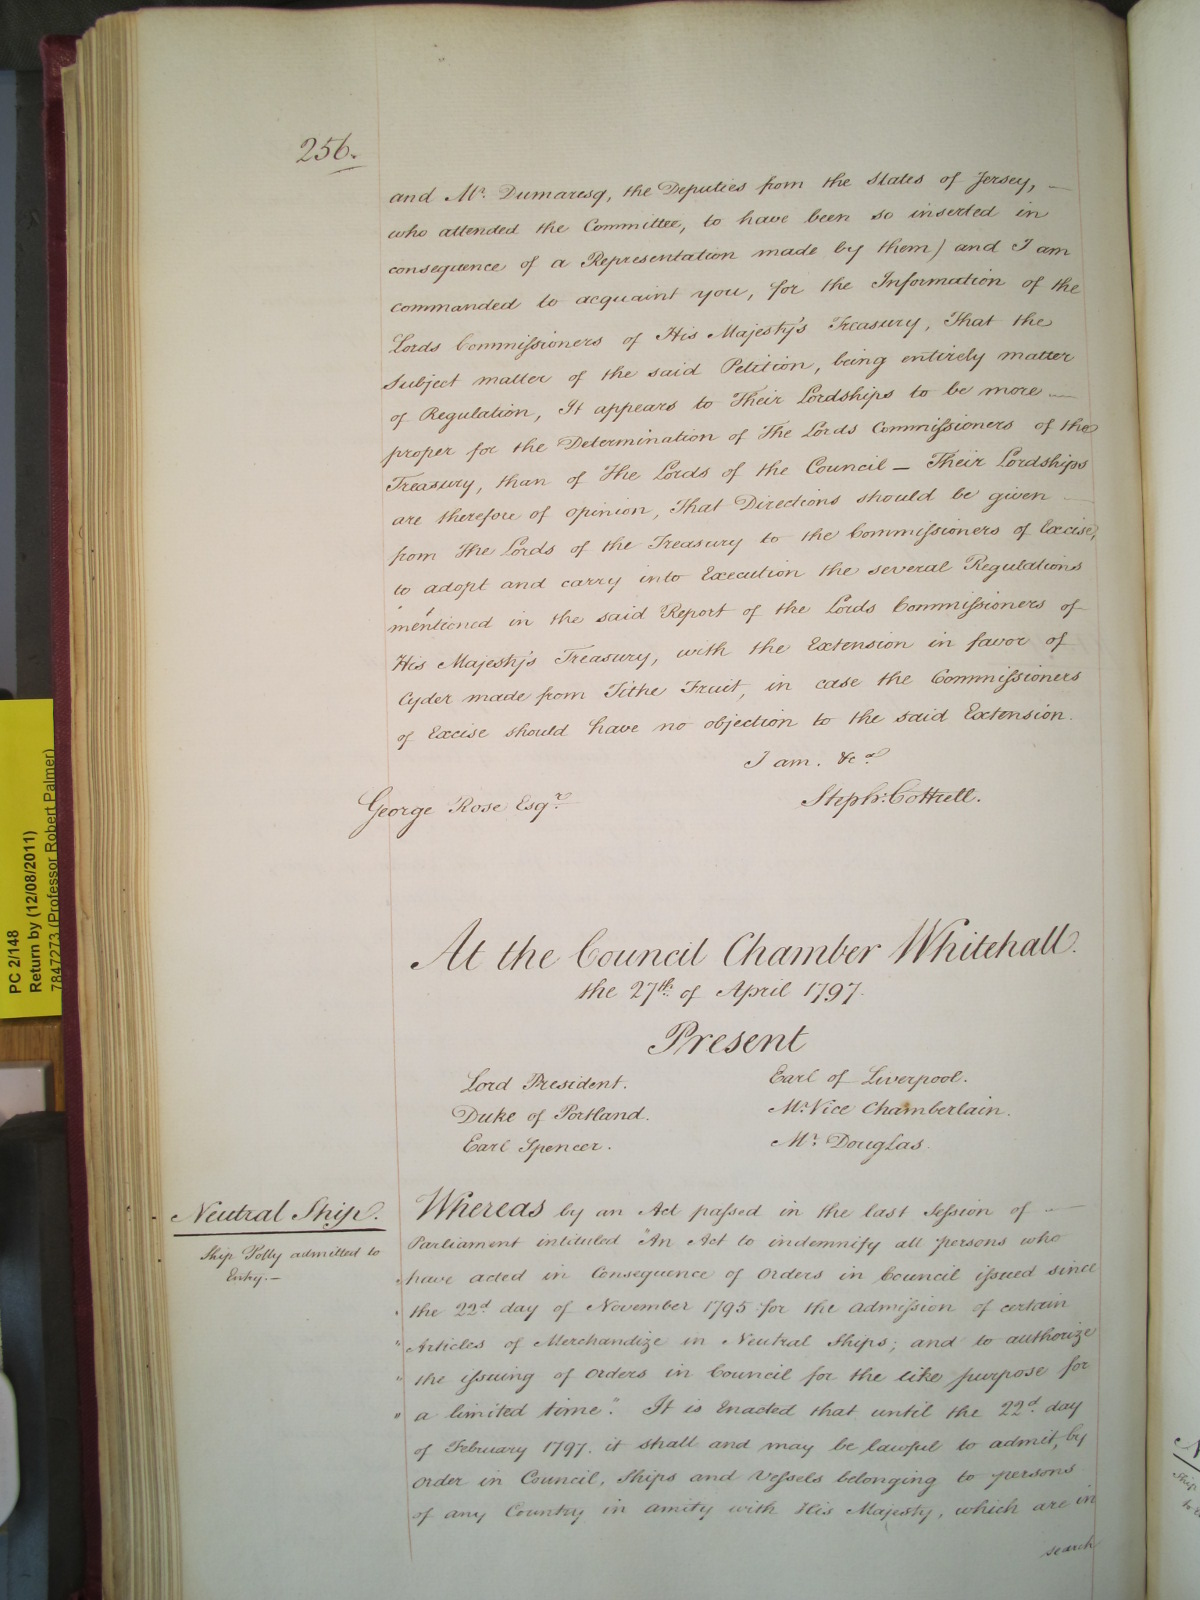 256.
and Mr. Dumaresq, the Deputies from the States of Jersey, —
who attended the Committee, to have been so inserted in
consequence of a Representation made by them) and I am
commanded to acquaint you, for the Information of the
Lords Commissioners of His Majesty's Treasury, That the
Subject matter of the said Petition, being entirely matter
of Regulation, It appears to Their Lordships to be more —
proper for the Determination of The Lords Commissioners of the
Treasury, than of The Lords of the Council — Their Lordships
are therefore of opinion, That Directions should be given —
from The Lords of the Treasury to the Commissioners of Excise,
to adopt and carry into Execution the several Regulations
mentioned in the said Report of the Lords Commissioners of
His Majesty's Treasury, with the Extension in favor of
Cyder made from Tithe Fruit, in case the Commissioners
of Excise should have no objection to the said Extension.
I am. &ca
George Rose Esqr.
Stephn. Cottrell.
At the Council Chamber Whitehall.
the 27th. of April 1797.
Present
Lord President.
Earl of Liverpool.
Duke of Portland.
Mr. Vice Chamberlain.
Earl Spencer.
Mr. Douglas.
Neutral Ship.
Ship Polly admitted to
Entry. —
Whereas by an Act passed in the last Session of —
Parliament intituled "An Act to indemnify all persons who
"have acted in Consequence of Orders in Council issued since
"the 22d day of November 1795 for the admission of certain
"Articles of Merchandize in Neutral Ships; and to authorize
"the issuing of Orders in Council for the like purpose for
"a limited time." It is Enacted that until the 22d. day
of February 1797. it shall and may be lawful to admit, by
Order in Council, Ships and Vessels belonging to persons
of any Country in amity with His Majesty, which are in
search
PC 2/148
Return by (12/08/2011)
7847273 (Professor Robert Palmer)